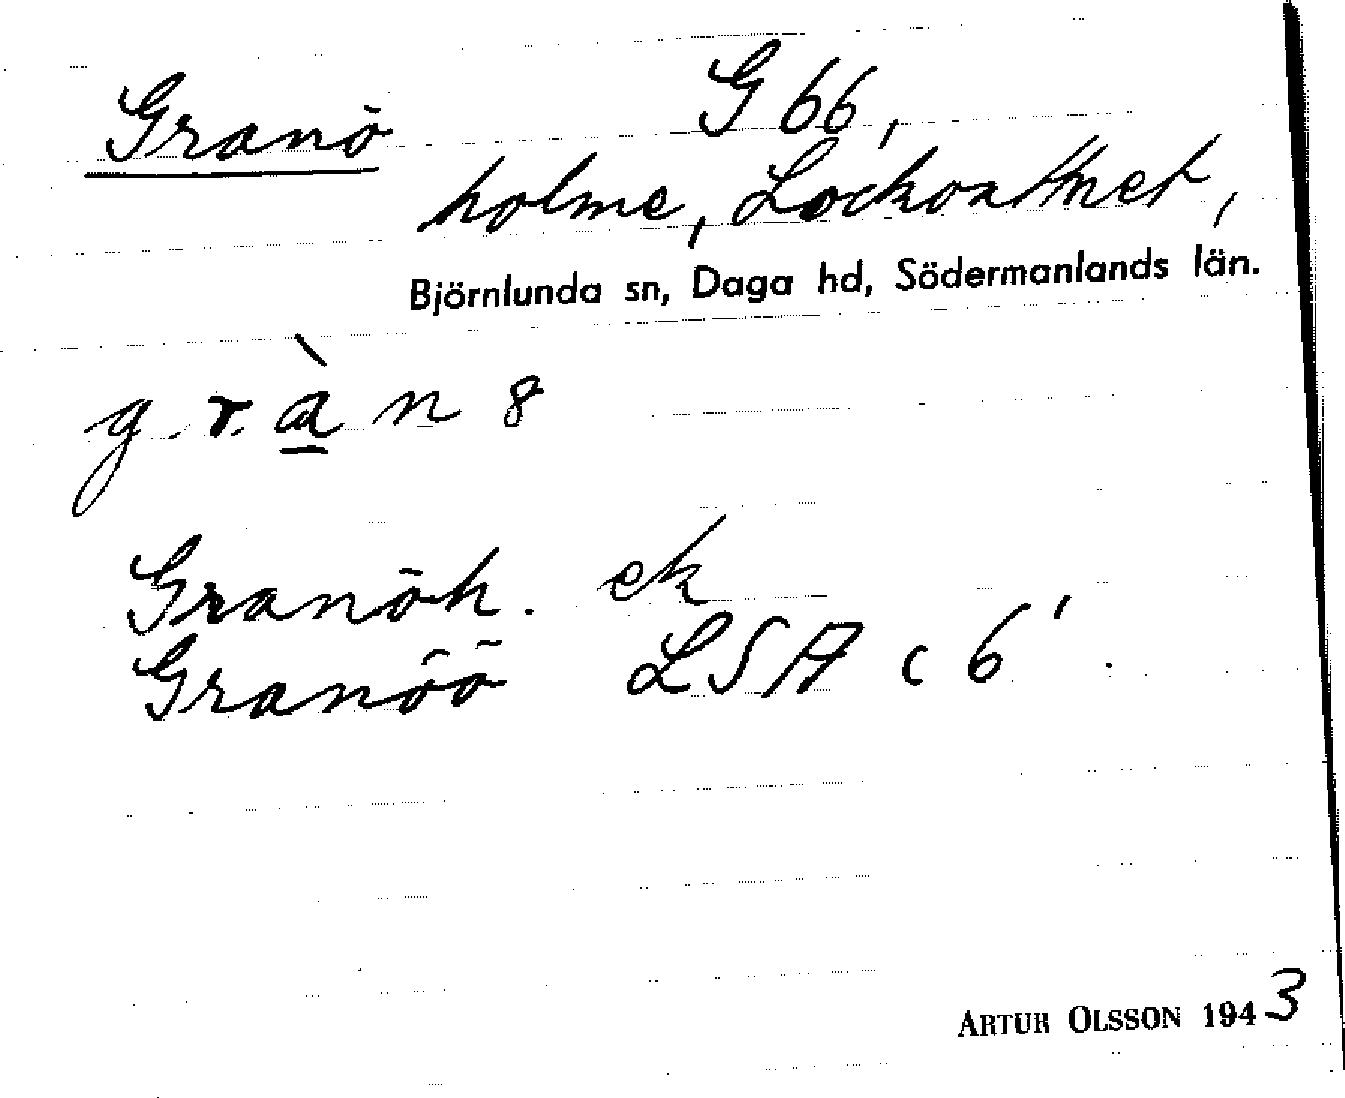 Granö G 66,
holme, Lockvattnet,
Björnlunda sn, Daga hd, Södermanlands län.
g r à n 8
Granöh. ek
Granöö LSA c 6'
ARTUR OLSSON 1943